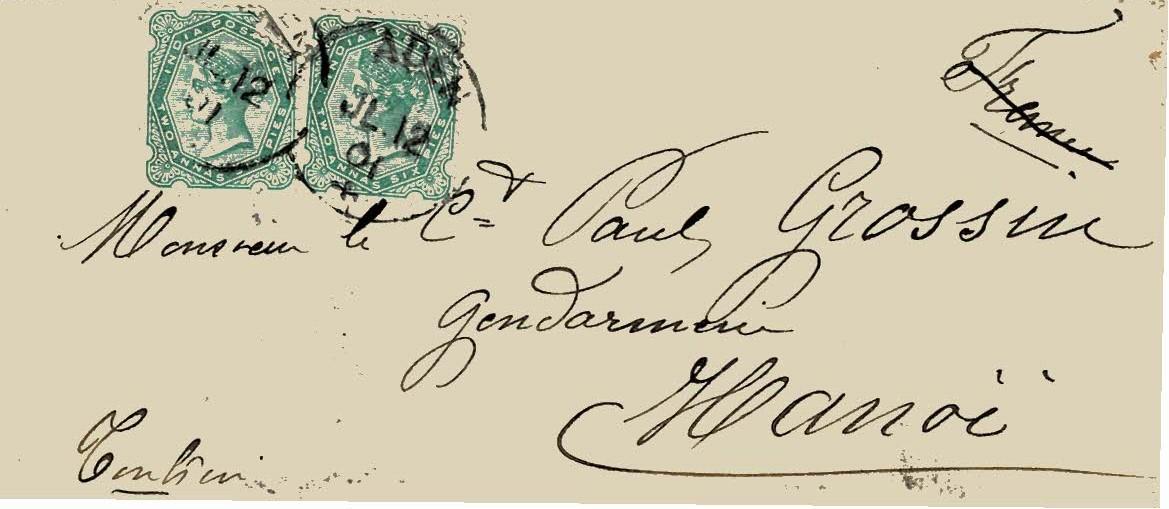 INDIA POSTAGE
TWO ANNAS SIX PIES
JL.12
01
INDIA POSTAGE
TWO ANNAS SIX PIES
ADEN
JL.12
01
France
Monsieur le Ct Paul Grossin
Gendarmerie
Hanoï
Tonkin